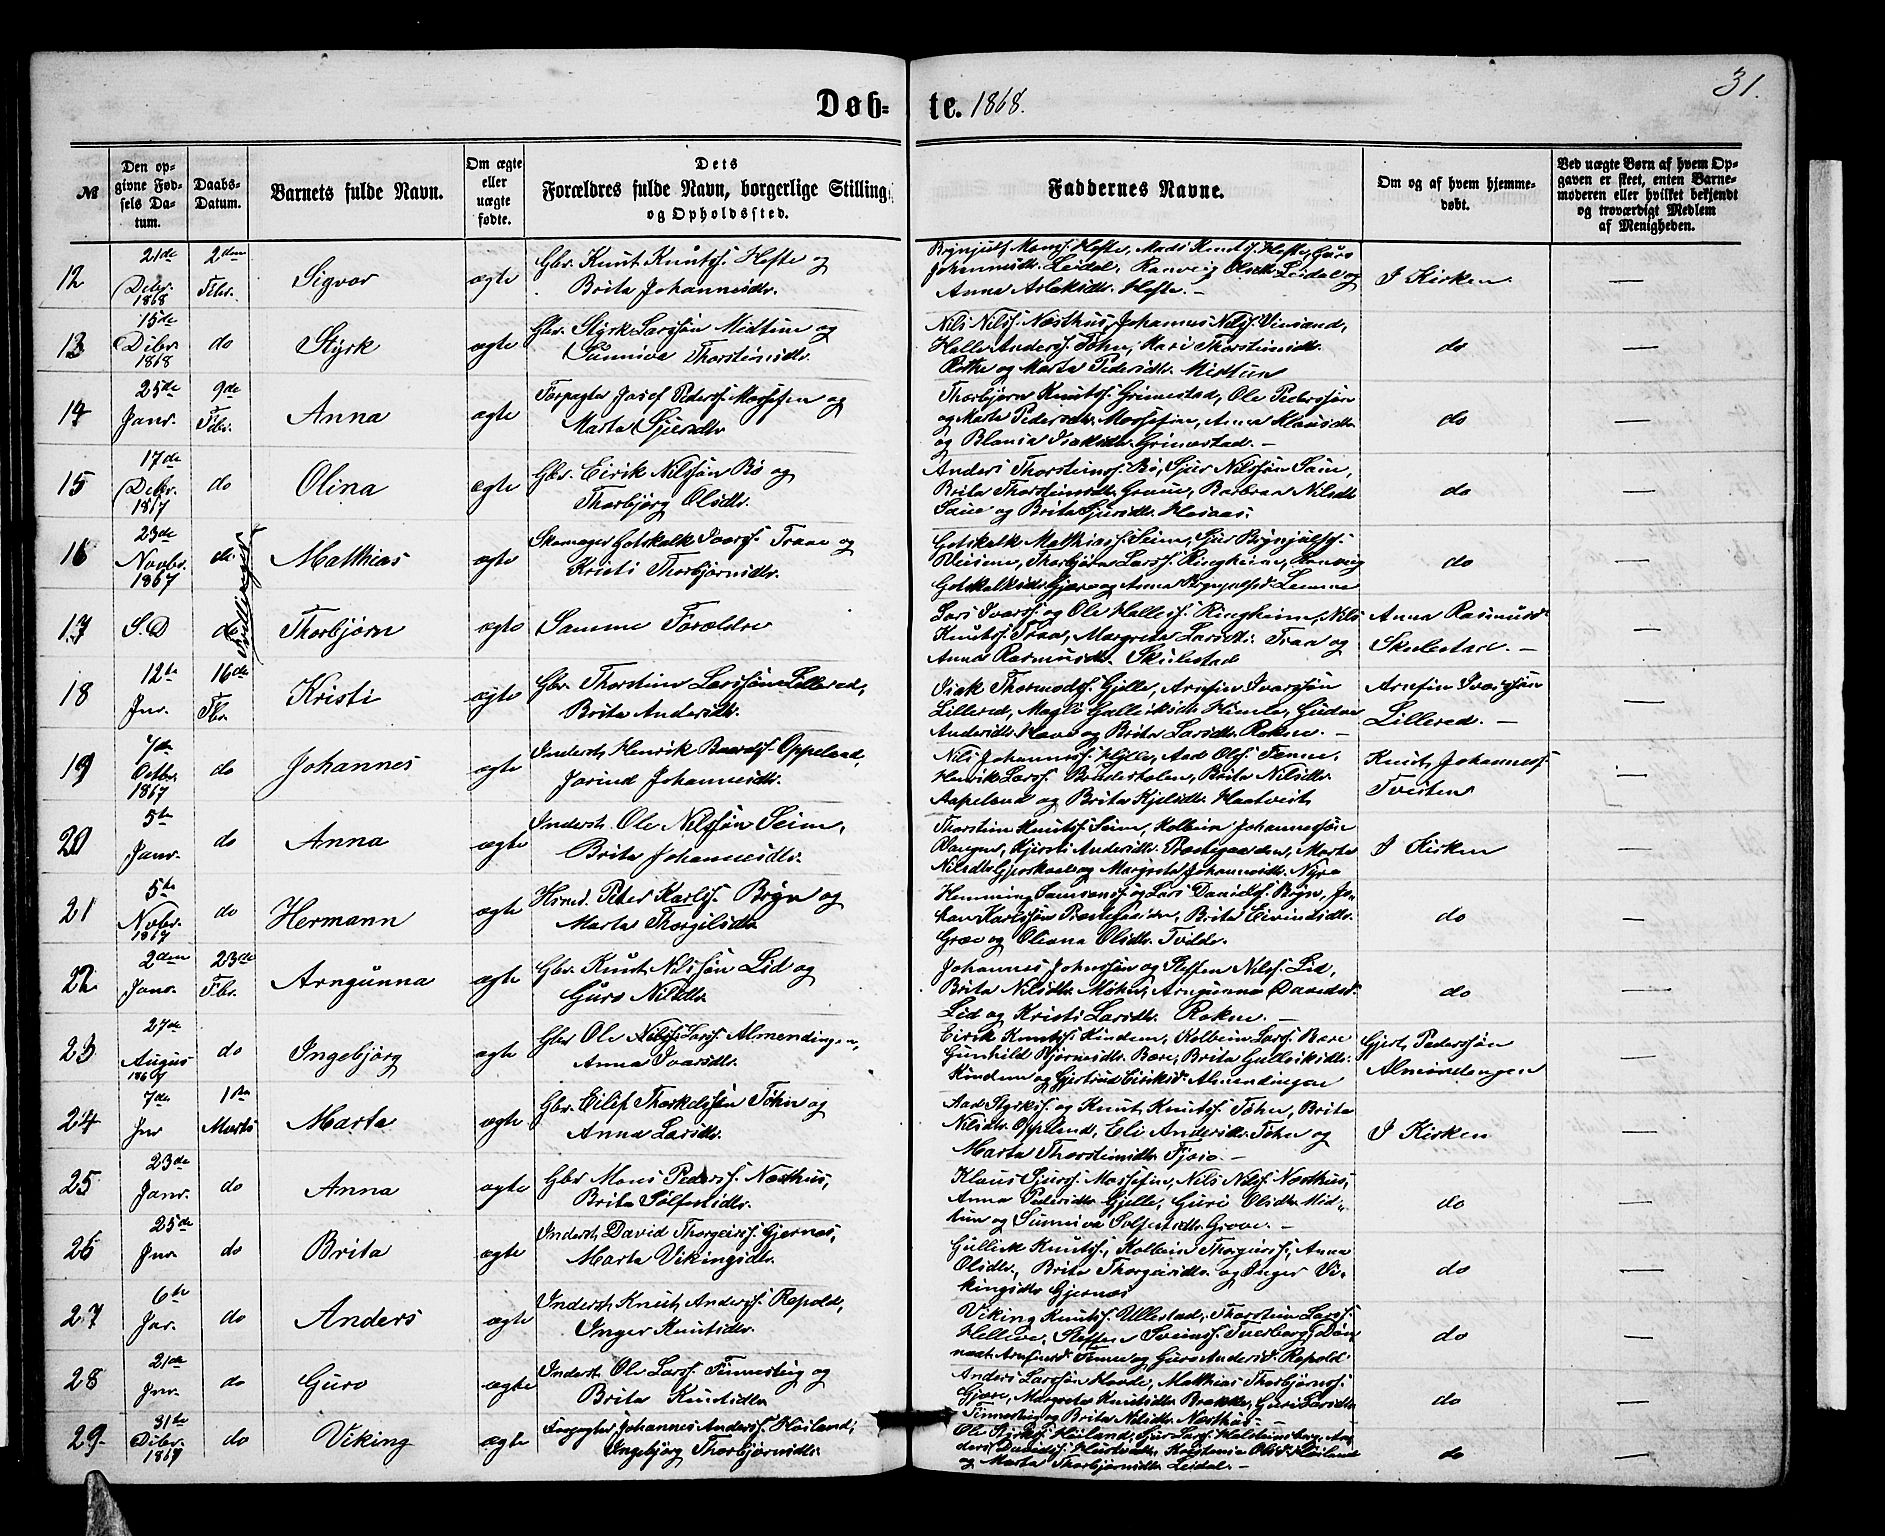 Døb-
te. 1868.
31.
№
Den op-
givne Fød-
sels Da-
tum.
Daabs-
Datum.
Barnets fulde Navn.
Om ægte
eller
uægte
fødte.
Dets
Forældres fulde Navn, borgerlige Stilling
og Opholdssted.
Faddernes Navne.
Om og af hvem hjemme-
døbt.
Ved uægte Børn af hvem Op-
gaven er skeet, enten Barne-
moderen eller hvilket bekjendt
og troværdigt Medlem
af Menigheden.
12 21de Debr. 1868 2den Febr. Sigvor ægte
Gbr. Knut Knutss. Hefte og
Brita Johannesdtr.
Brynjulf Monss. Hefte, Mads Knutss. Hefte, Guro
Johannesdtr. Leidal, Ranveig Olsdtr. Leidal og
Anna Aslaksdtr. Hefte. –
I Kirken
13 15de Debr. 1868 do Styrk ægte
Gbr. Styrk Larssøn Midtun og
Sunniva Thorsteinsdtr.
Nils Nilss. Næsthus, Johannes Nilss. Vinsand,
Halle Anderss. Tøhn, Kari Thorsteinsdtr.
Rothe og Marta Pedersdtr. Midtun
do
14 25de Janr. 9de Febr. Anna ægte
Forpagter Josef Pederss. Mossefin og
Marta Sjursdtr.
Thorbjørn Knutss. Grimestad, Ole Pederssøn
og Marta Pedersdtr. Mossefin, Anna Klausdtr.
og Blansa Isaksdtr. Grimestad. –
do
15 17de Debr. 1867 do Olina ægte
Gbr. Eirik Nilssøn Bø og
Thorbjørg Olsdtr.
Anders Thorsteinss. Bø, Sjur Nilssøn Saue,
Brita Thorsteinsdtr. Graue, Barbraa Nilsdtr.
Saue og Brita Sjursdtr.
do
16 23de Novbr. 1867 do Matthias ægte
Tvillinger
Skomager Gotskalk Ivarss. Traae og
Kristi Thorbjørnsdtr.
Gotskalk Mathiass. Seim, Sjur Brynjulfss.
Thorbjørn Larss. Ringheim, Ranveig
Gotskalksdtr. Gjære og Anna Brynjulfsd.
do
17 S.D do Thorbjørn ægte
Samme Forældre
Lars Ivarss. og Ole Halless. Ringheim, Nils
Knutss. Traa, Margreta Larsdtr. Traa og
Anna Rasmusdtr. Skulestad
Anna Rasmusdr.
Skulestad. –
18 12te Jnr. 16de Fbr. Kristi ægte
Gbr. Thorstein Larssøn Lillered,
Brita Andersdtr.
Isak Thormodss. Gjelle, Arnfin Ivarssøn
Lillered, Magli Gulleiksdtr. Himle, Gudve
Andersdtr. Have og Brita Larsdtr. Rokne. –
Arnfin Ivarssøn
Lillered. –
19 7de Octbr. 1867 do Johannes ægte
Inderst Henrik Baardss. Oppeland,
Jorind Johannesdtr.
Nils Johanness. Hylle, Aad Olss. Tenne,
Henrik Larss. Brita Nilsdtr.
Aapeland og Brita Kjelsdtr. Haatveit
Knut Johanness.
Tvisten
20 5te Janr. do Anna ægte
Inderst. Ole Nilssøn Seim,
Brita Johannesdtr.
Thorstein Knutss. Seim, Kolbein Johannessøn
Vangen, Kjersti Andersdtr. Præstegaarden, Marta
Nilsdtr. Gjerskaal og Margreta Johannesdtr. Nyre
I Kirken
21 5te Novbr. 1867 do Hermann ægte
Hsmd. Peter Karlss. Bryn og
Marta Thorgilsdtr.
Hemming Samsonss. og Lars Davidss. Bryn, Jo-
han Karlssøn Brita Eivindsdtr.
Græe og Oliana Olsdtr. Tvilde.
do
22 2den Janr. 23de Fbr. Arngunna ægte
Gbr. Knut Nilssøn Lid og
Guro Nilsdtr.
Johannes Johnssøn og Steffen Nilss. Lid,
Brita Nilsdtr. Møhn, Arngunna Davidsd.
Lid og Kristi Larsdtr. Rokne. –
do
23 27de Augus 1867 do Ingebjørg ægte
Gbr. Ole Larss. Almendingen,
Anna Ivarsdtr.
Eirik Knutss. Kindem, Kolbein Larss. Bære
Gunhild Bjørnsdtr. Bære, Brita Gulleiksdtr.
Kindem og Gjertrud Eiriksd. Almendingen
Gjert Pederssøn
Almendingen
24 7de Jnr 1ste Marts Marta ægte
Gbr. Eilef Thorkelssøn Tøhn og
Anna Larsdtr.
Aad Styrkss. og Knut Knutss. Tøhn, Brita
Nilsdtr. Oppeland, Eli Andersdtr. Tøhn og
Marta Thorsteinsdtr. Fjose. –
I Kirken
25 23de Janr. do Anna ægte
Gbr Mons Pederss. Næsthus,
Brita Solfestsdtr.
Klaus Sjurss. Mossefin, Nils Nilss. Næsthus,
Anna Pedersdtr. Gjelle, Guri Olsdtr. Mid-
tun og Sunniva Solfestsdtr. Grove. –
do
26 25de Jnr. do Brita ægte
Inderst David Thorgeirss. Gjernæs,
Marta Vikingsdtr.
Gulleik Knutss., Kolbein Thorgeirss., Anna
Olsdtr., Brita Thorgeirsdtr. og Inger Vi-
kingsdtr. Gjernæs
do
27 6te Jnr. do Anders ægte
Inderst Knut Anderss. Repold,
Inger Knutsdtr.
Viking Knutss. Ullestad, Thorstein Larss.
Helleve, Steffen Sveinss. Tverberg,
Arnfinsd. Tenne og Guro Andersd. Repold
do
28 21de Jnr. do Guro ægte
Inderst Ole Larss. Finnesteig og
Brita Knutsdtr.
Anders Larssøn Hovde, Matthias Thorbjørnss.
Gjære, Margreta Knutsdtr. Brække, Guri Larsdtr.
Finnesteig og Brita Nilsdtr. Næsthus. –
do
29 31te Debr. 1867 do Viking ægte
Forpagter Johannes Anderss. Høiland,
Ingebjørg Thorbjørnsdtr.
Ole Styrkss. Høiland, Sjur Larss. An-
ders Davidss. Olsd. Høiland
og Marta Thorbjørnsdtr. Leidal. –
do